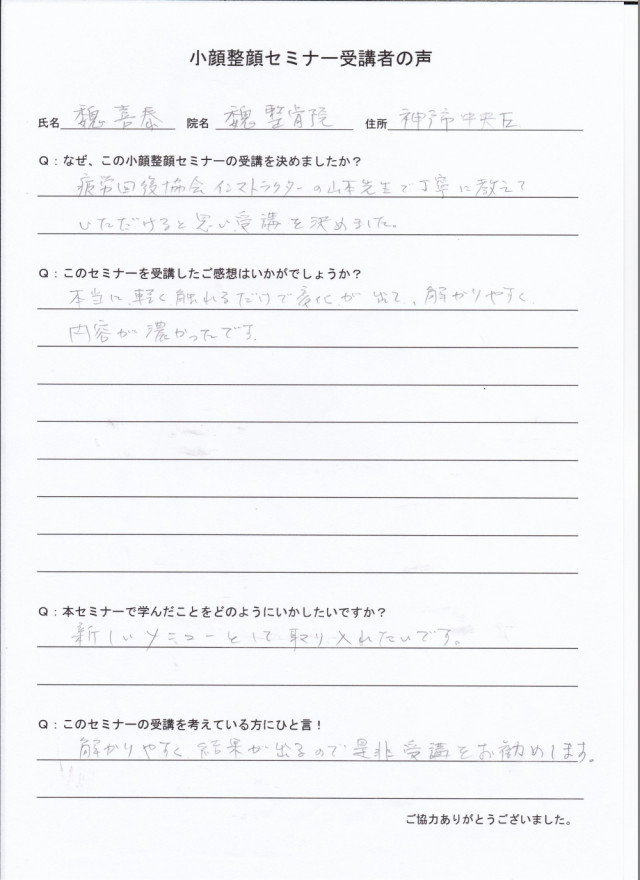 小顔整顔セミナー受講者の声
氏名 魏 喜泰 院名 魏 整骨院 住所 神戸市中央区
Q：なぜ、この小顔整顔セミナーの受講を決めましたか？
疲労回復協会インストラクターの山本先生で丁寧に教えて
いただけると思い受講を決めました。
Q：このセミナーを受講したご感想はいかがでしょうか？
本当に軽く触れるだけで変化が出て、解かりやすく
内容が濃かったです。
Q：本セミナーで学んだことをどのようにいかしたいですか？
新しいメニューとして取り入れたいです。
Q：このセミナーの受講を考えている方にひと言！
解かりやすく結果が出るので是非受講をお勧めします。
ご協力ありがとうございました。